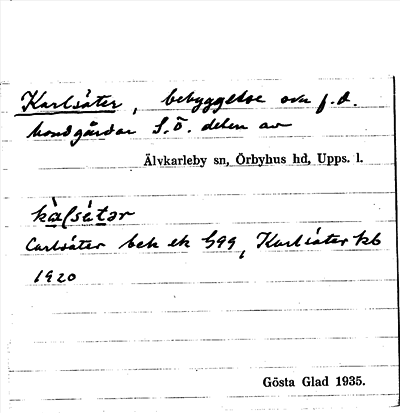 Karlsäter, bebyggelse som f.d.
bondgårdar S.Ö. delen av
Älvkarleby sn, Örbyhus hd, Upps. l.
kàlsètər
Carlsäter bek ek 599, Karlsäter kb
1920
Gösta Glad 1935.